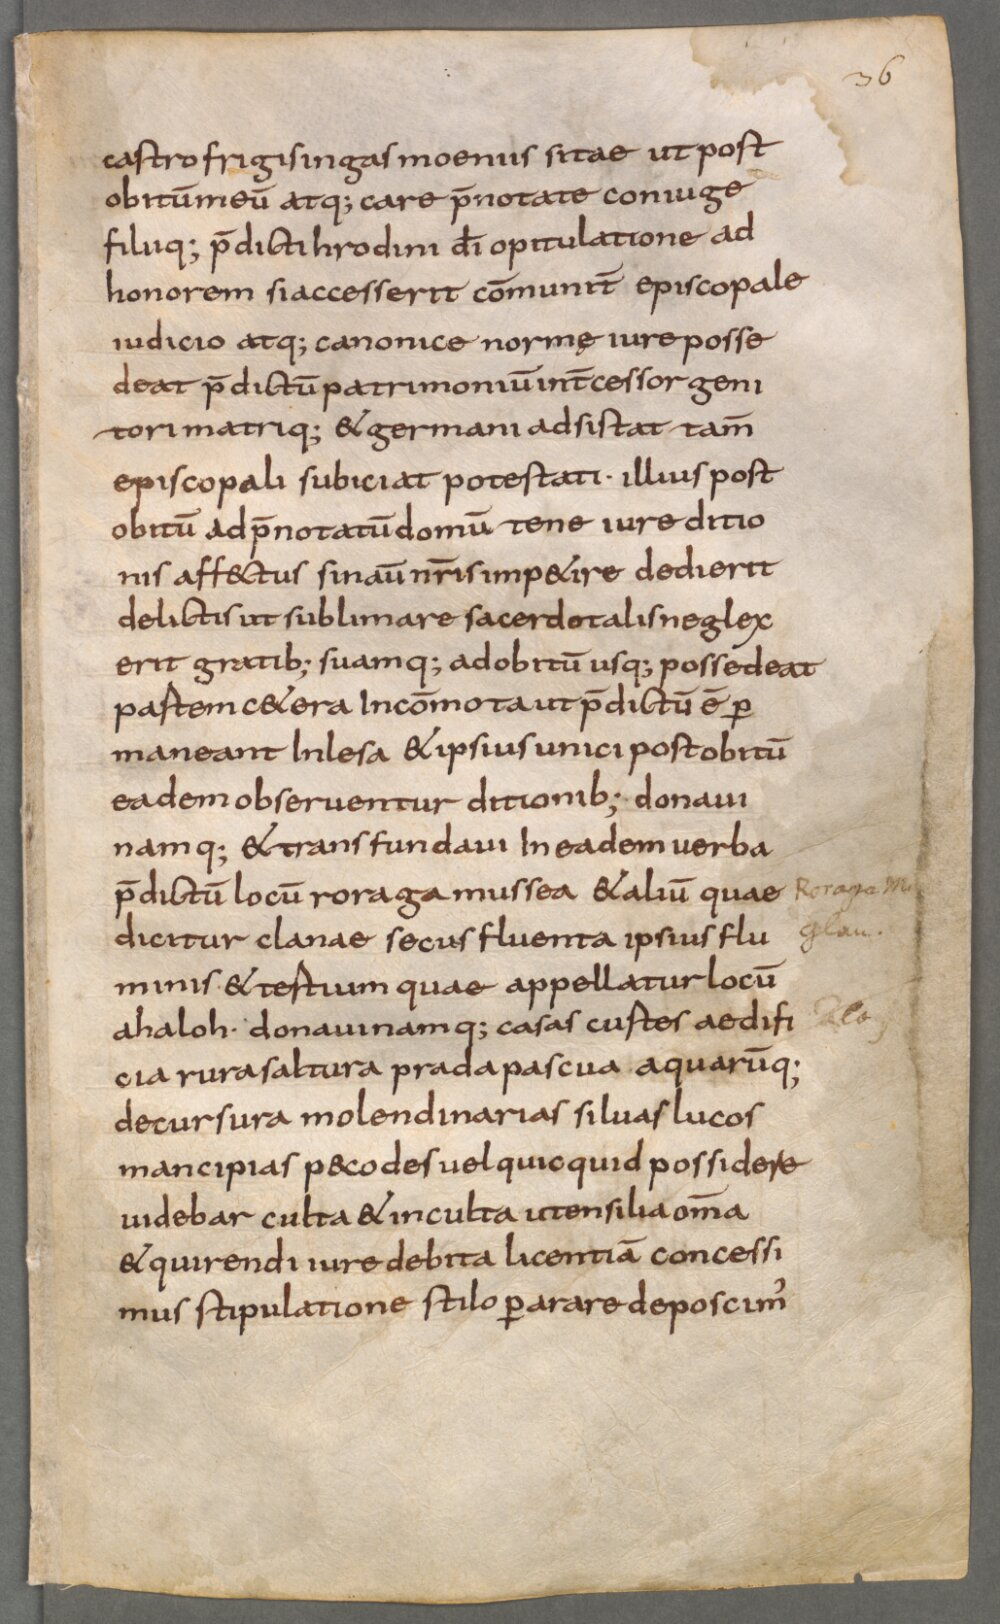 36
castro frigisingas moenus sitae ut post
obitū meū atq; care p̄notate coniuge
filiiq; p̄dicti hrodini dī opitulatione ad
honorem si accesserit cōmunit̄ episcopale
iudicio atq; canonice normę iure posse
deat p̄dictū patrimoniū int̄cessor geni
tori matriq; & germani adsistat tam̄
episcopali subiciat potestati· illius post
obitū ad p̄notatū domū tene iure ditio
nis aff&tus sinaū nr̄is imp&ire dedierit
delictis ut sublimare sacerdotalis neglex
erit gratib; suamq; ad obitū usq; possedeat
pastem c&era Incōmota ut p̄dictū ē ꝑ
maneant Inlesa & ipsius unici post obitū
eadem obseruentur ditionib; donaui
namq; & transfundaui In eadem uerba
p̄dictū locū roraga mussea & aliū quae
Roraga M
dicitur clanae secus fluenta ipsius flu
glan.
minis & testium quae appellatur locū
ahaloh· donaui namq; casas custes aedifi
cia rura saltura prada pascua aquarūq;
decursura molendinarias siluas lucos
mancipias p&codes uel quicquid possidere
uidebar culta & inculta utensilia om̄a
& quirendi iure debita licentiā concessi
mus stipulatione stilo ꝑarare deposcim᾿